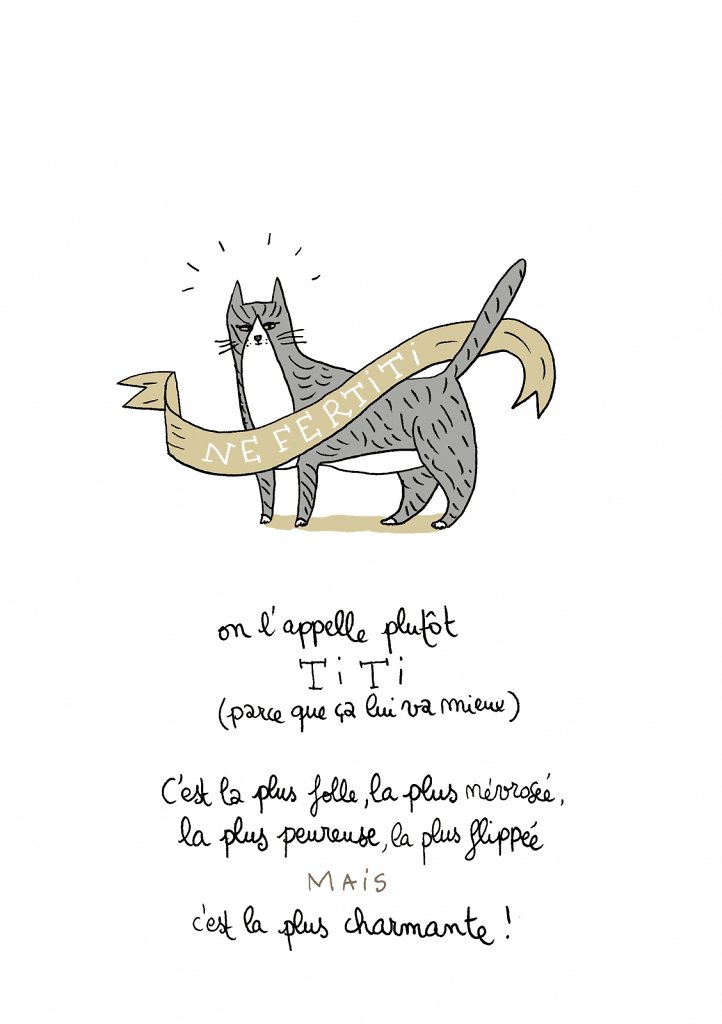 NEFERTiTi
on l'appelle plutôt
TiTi
(parce que ça lui va mieux)
C'est la plus folle, la plus névrosée,
la plus peureuse, la plus flippée
MAiS
c'est la plus charmante !